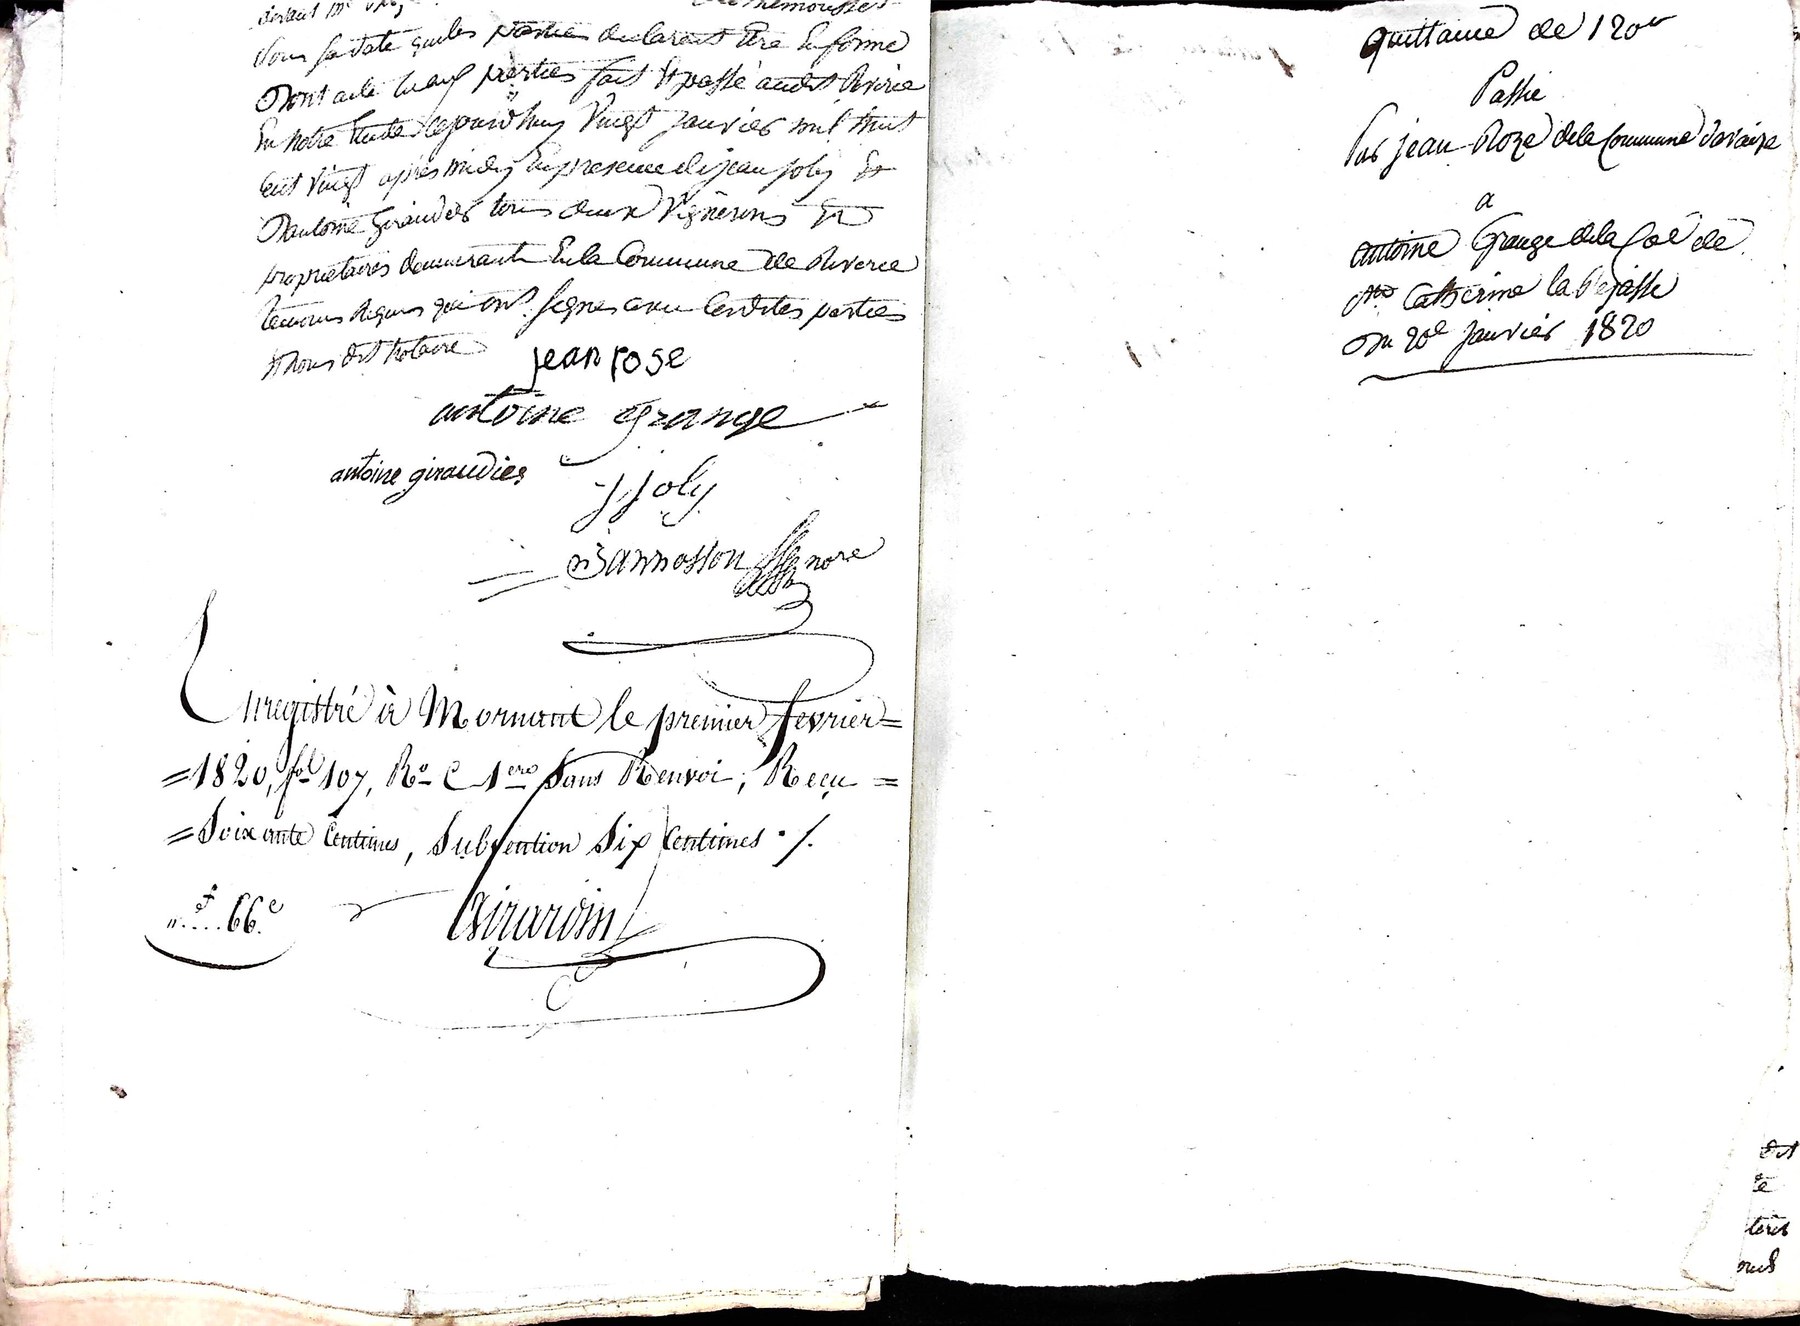 devant me
sous sa date que les parties declarent être en forme
Dont acte aux parties fait & passé audit Riverie
En notre Etude Cejourd'huy Vingt janvier mil huit
Cent Vingt après midy En presence de jean joly &
D'antoine Giraudier tous deux Vignerons Et
proprietaires demeurants En la Commune de Riverie
temoins Requis qui ont signes avec lesdites parties
& nous dit Notaire
jean rose
antoine grange
antoine giraudier
j joly
Bannosson nore
Enregistré à Mornant le premier fevrier =
= 1820, fol 107, Ro C 1ere Sans Renvoi, Reçu =
= Soixante Centimes, Subvention Six Centimes ./.
f
" .... 66.c
Girardin
quittance de 120
Passée
Par jean Roze de la Commune davaize
a
antoine Grange de la Coe de
Ste Catherine la
Du 20e janvier 1820
dit
te
terêt